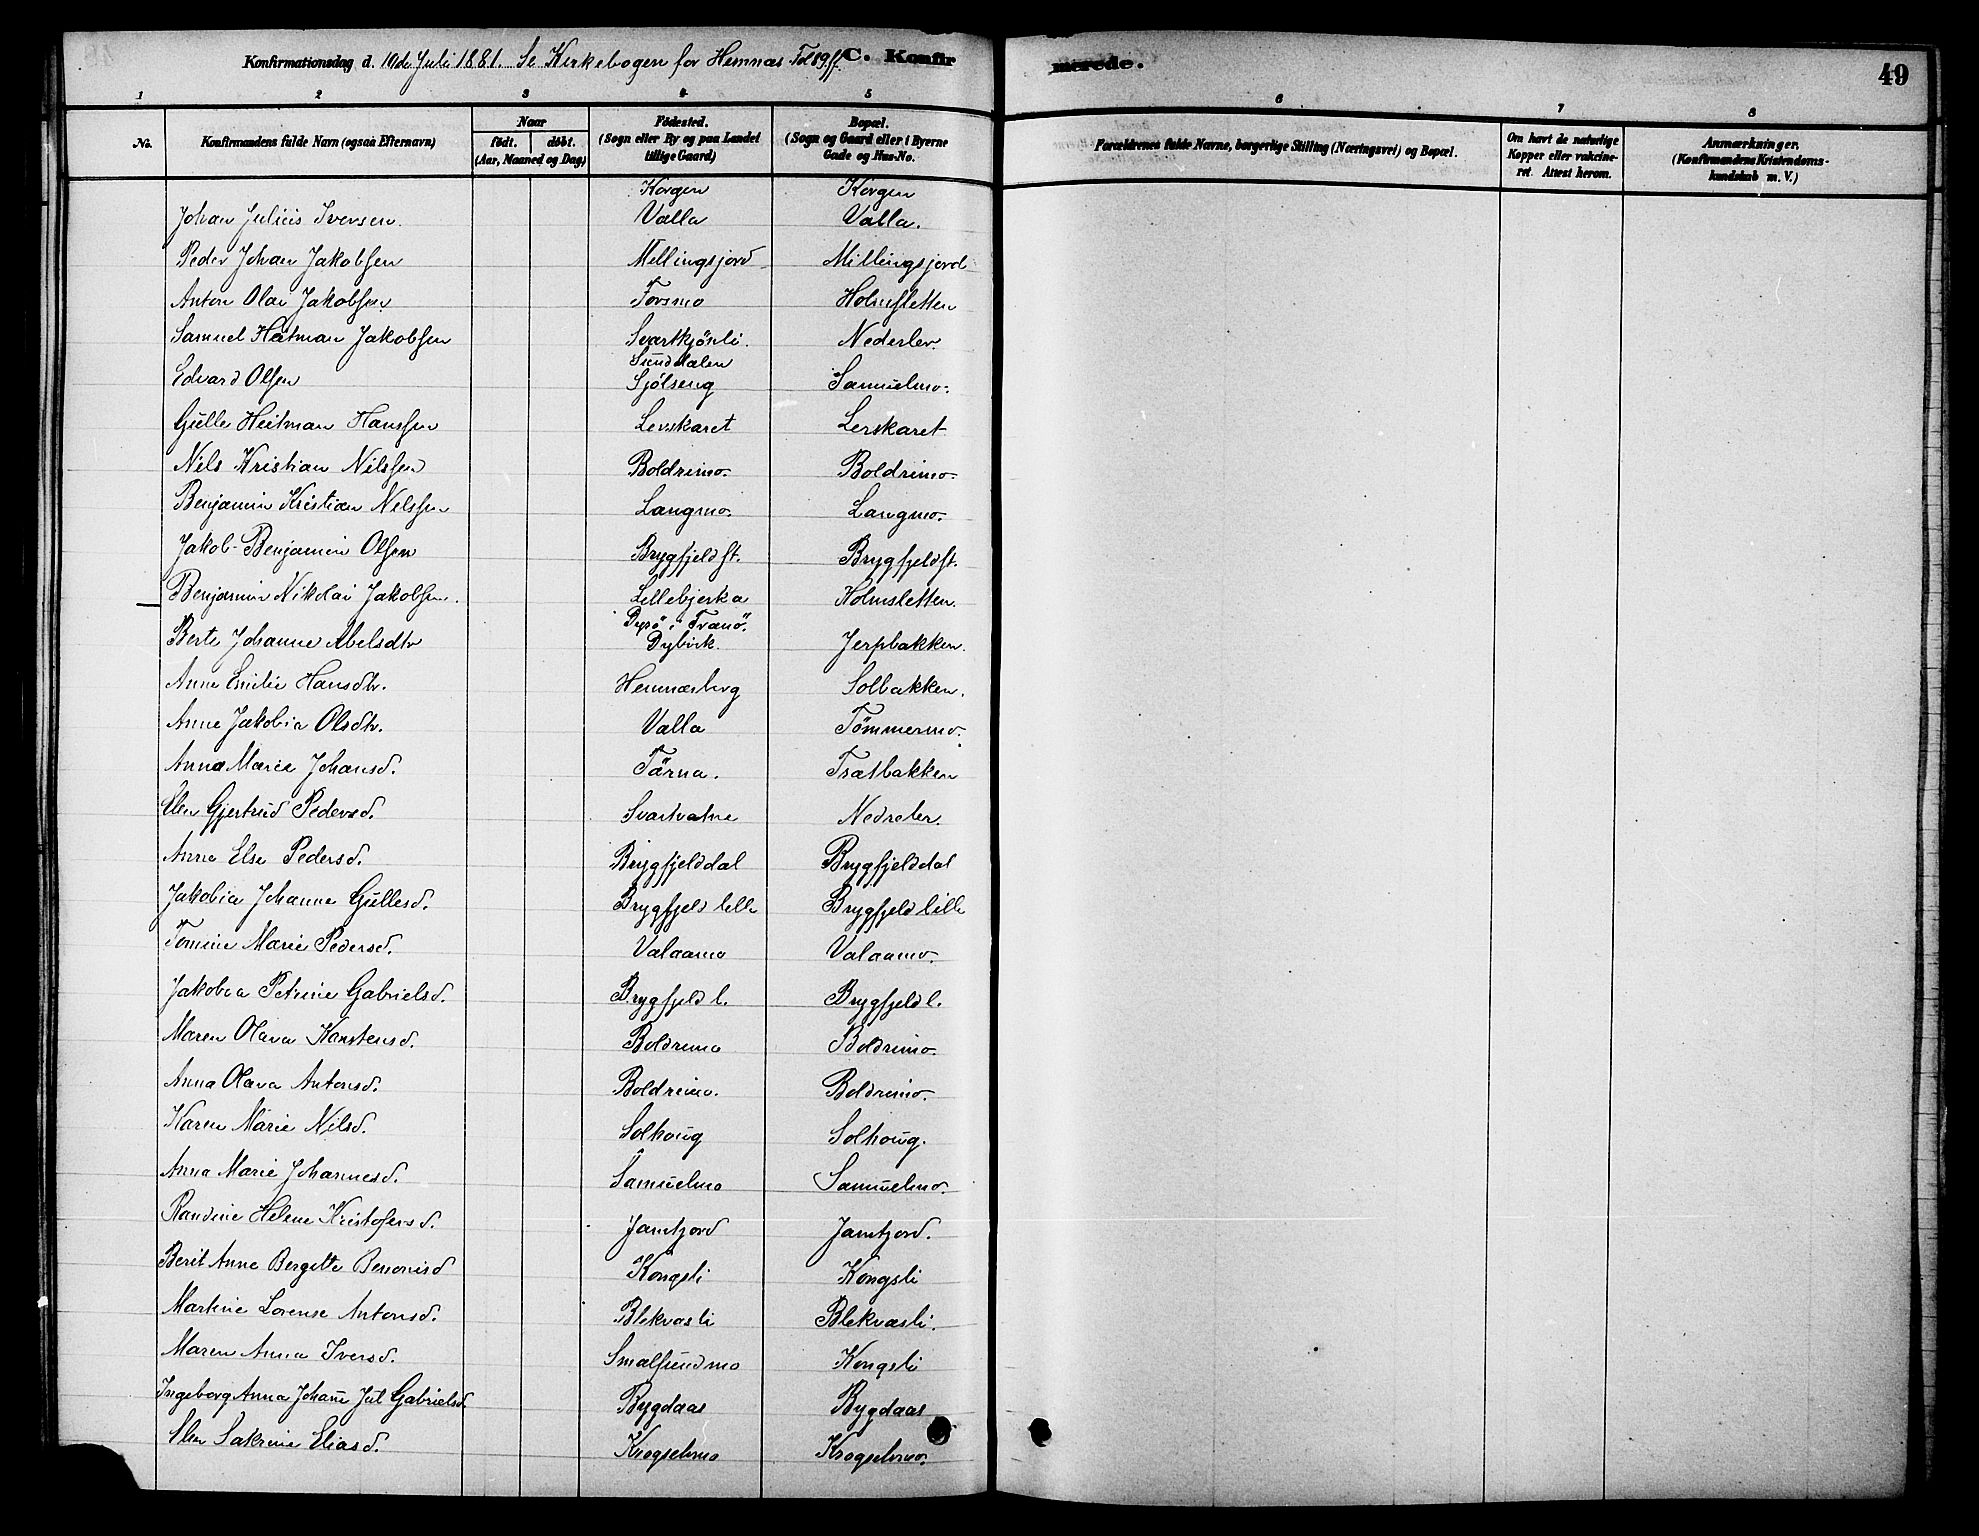 Konfirmationsdag d. 10de Juli 1881. Se Kirkebogen for Hemnæs Fol 89ff. C. Konfirmerede. 49
1 2 3 4 5 6 7 8
No. Konfirmandens fulde Navn (ogsaa Efternavn) Naar født. døbt. (Aar, Maaned og Dag) Fødested. (Sogn eller By og paa Landet tillige Gaard) Bopæl. (Sogn og Gaard eller i Byerne Gade og Hus-No. Forældrenes fulde Navne, borgerlige Stilling (Næringsvei) og Bopæl. Om havt de naturlige Kopper eller vakcineret. Attest herom. Anmærkninger. (Konfirmandens Kristendomskundskab m. V.)
Korgen Korgen
Johan Julius Iversen. Valla Valla.
Peder Johan Jakobsen Millingsjord Millingsjord
Anton Olai Jakobsen Forsmo Holmsletten
Samuel Heitman Jakobsen Svartkjönli. Nederler.
Sunddalen
Edvard Olsen Sjölseng Samuelmo.
Gulle Heitman Hanssen Lerskaret Lerskaret
Nils Kristian Nilssen Boldrimo. Boldrimo.
Benjamin Kristian Nilssen Langmo. Langmo.
Jakob Benjamin Olsen Brygfjeld st. Brygfjeld st.
Benjamin Nikolai Jakobsen. Lillebjerka Holmsletten.
Dyrö i Tranö.
Berte Johanne Abelsdtr Dybvik. Jerpbakken.
Anne Emilie Hansdtr. Hemnæsberg Solbakken.
Anne Jakobia Olsdtr. Valla Tömmermo.
Anna Marie Johansd. Tärna. Tsatbakken
Elen Gjertrud Pedersd. Svartvatne Nedreler.
Anne Else Pedersd. Brygfjelddal Brygfjelddal
Jakobia Johanne Gullesd. Brygfjeld lille Brygfjeld lille
Tomine Marie Pedersd. Valaamo Valaamo.
Jakobia Petrine Gabrielsd. Brygfjeld l. Brygfjeld l.
Maren Olava Karstensd. Boldrimo Boldrimo.
Anna Olava Antonsd. Boldrimo. Boldrimo.
Karen Marie Nilsd. Solhoug Solhoug.
Anna Marie Johannesd. Samuelmo Samuelmo.
Randine Helene Kristofersd. Jamtjord Jamtjord.
Berit Anne Bergitte Benonisd Kongsli Kongsli
Martine Lorense Antonsd. Blekvasli Blekvasli.
Maren Anna Iversd. Smalsundmo Kongsli
Ingeborg Anna Johanne Jul Gabrielsd. Bygdaas Bygdaas
Elen Sakrine Eliasd. Krogselvmo Krogselvmo.